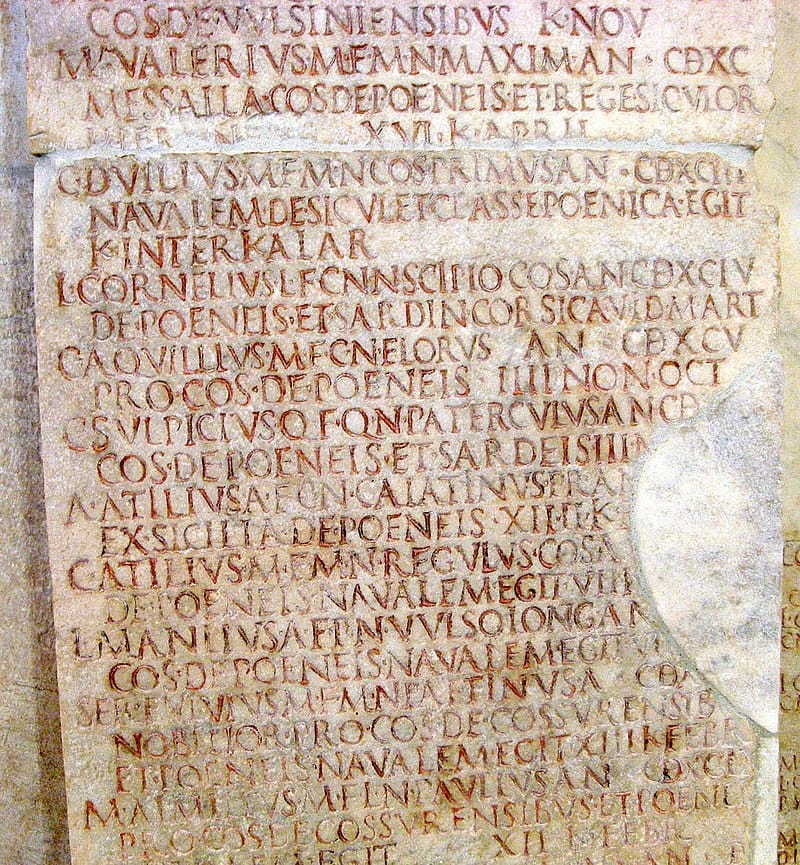 COS·DE·VVLSINIENSIBVS K·NOV
M·VALERIVS·M·F·M·N·MAXIM·AN · CDXC
MESSALLA·COS·DE·POENEIS·ET·REGE·SICVLOR
XVI·K·APRIL
C·DVILIVS·M·F·M·N·COS·PRIMVS·AN · CDXCIII
NAVALEM·DE·SICVL·ET·CLASSE·POENICA·EGIT
K·INTERKALAR
L·CORNELIVS·L·F·CN·N·SCIPIO COS·AN·CDXCIV
DE·POENEIS·ET·SARDIN·CORSICA·V·ID·MART
C·AQVILLIVS·M·F·C·N·FLORVS AN CDXCV
PRO·COS·DE·POENEIS IIII·NON·OCT
C·SVLPICIVS·Q·F·Q·N·PATERCVLVS·AN CD
COS·DE·POENEIS·ET·SARDEIS III N
A·ATILIVS·A·F·C·N·CAIATINVS·PR·AN
EX·SICILIA·DE·POENEIS·XIIII·K
C·ATILIVS·M·F·M·N·REGVLVS·COS·A
DE·POENEIS·NAVALEM·EGIT·VIII
L·MANLIVS·A·F·P·N·VVLSO·LONG·AN
COS·DE·POENEIS·NAVALEM·EGIT
SER·FVLVIVS·M·F·M·N·PAETINVS·A CD
NOBILIOR·PRO·COS·DE·COSSVRENSIB
ET·POENEIS·NAVALEM·EGIT·XIII·K·FEBR
M·AIMILIVS·M·F·L·N·PAVLLVS·AN CDXCI
PRO·COS·DE·COSSVRENSIBVS·ET·POENEI
EGIT XII K·FEBR